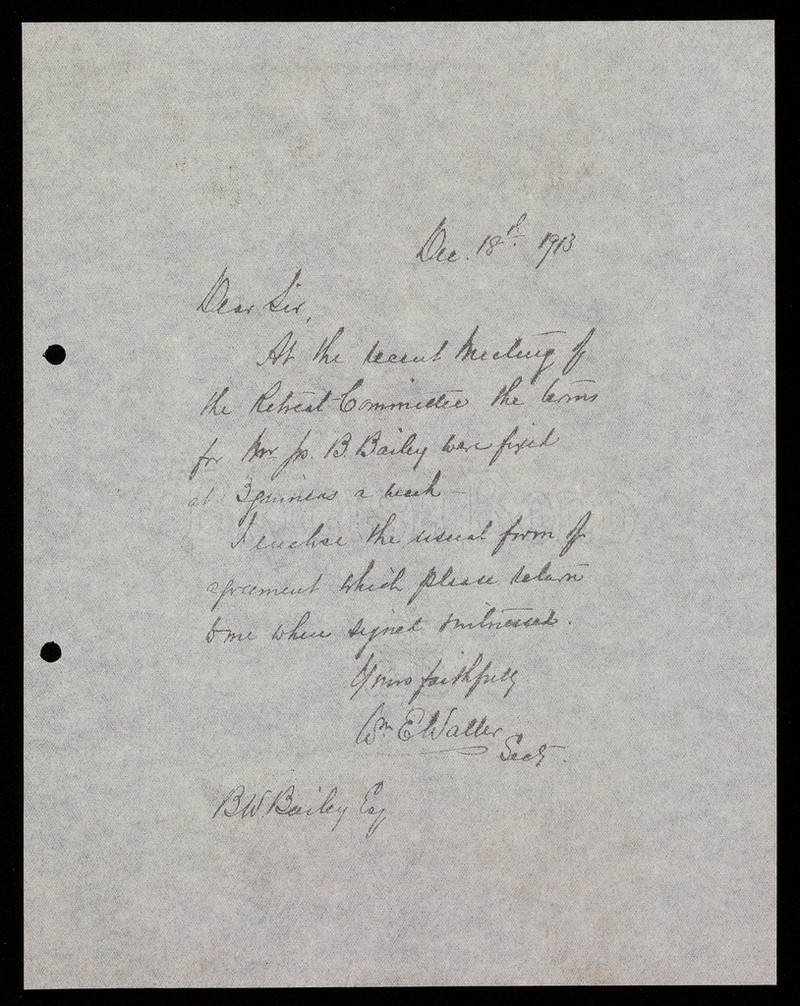 Dec. 18th. 1913
Dear Sir,
At the recent Meeting of
the Retreat Committee the terms
for Mr Js. B. Bailey were fixed
at 3 guineas a week –
I enclose the usual form of
agreement which please return
to me when signed & witnessed.
Yours faithfully
Wm. E Waller
Secty.
B W Bailey Esq